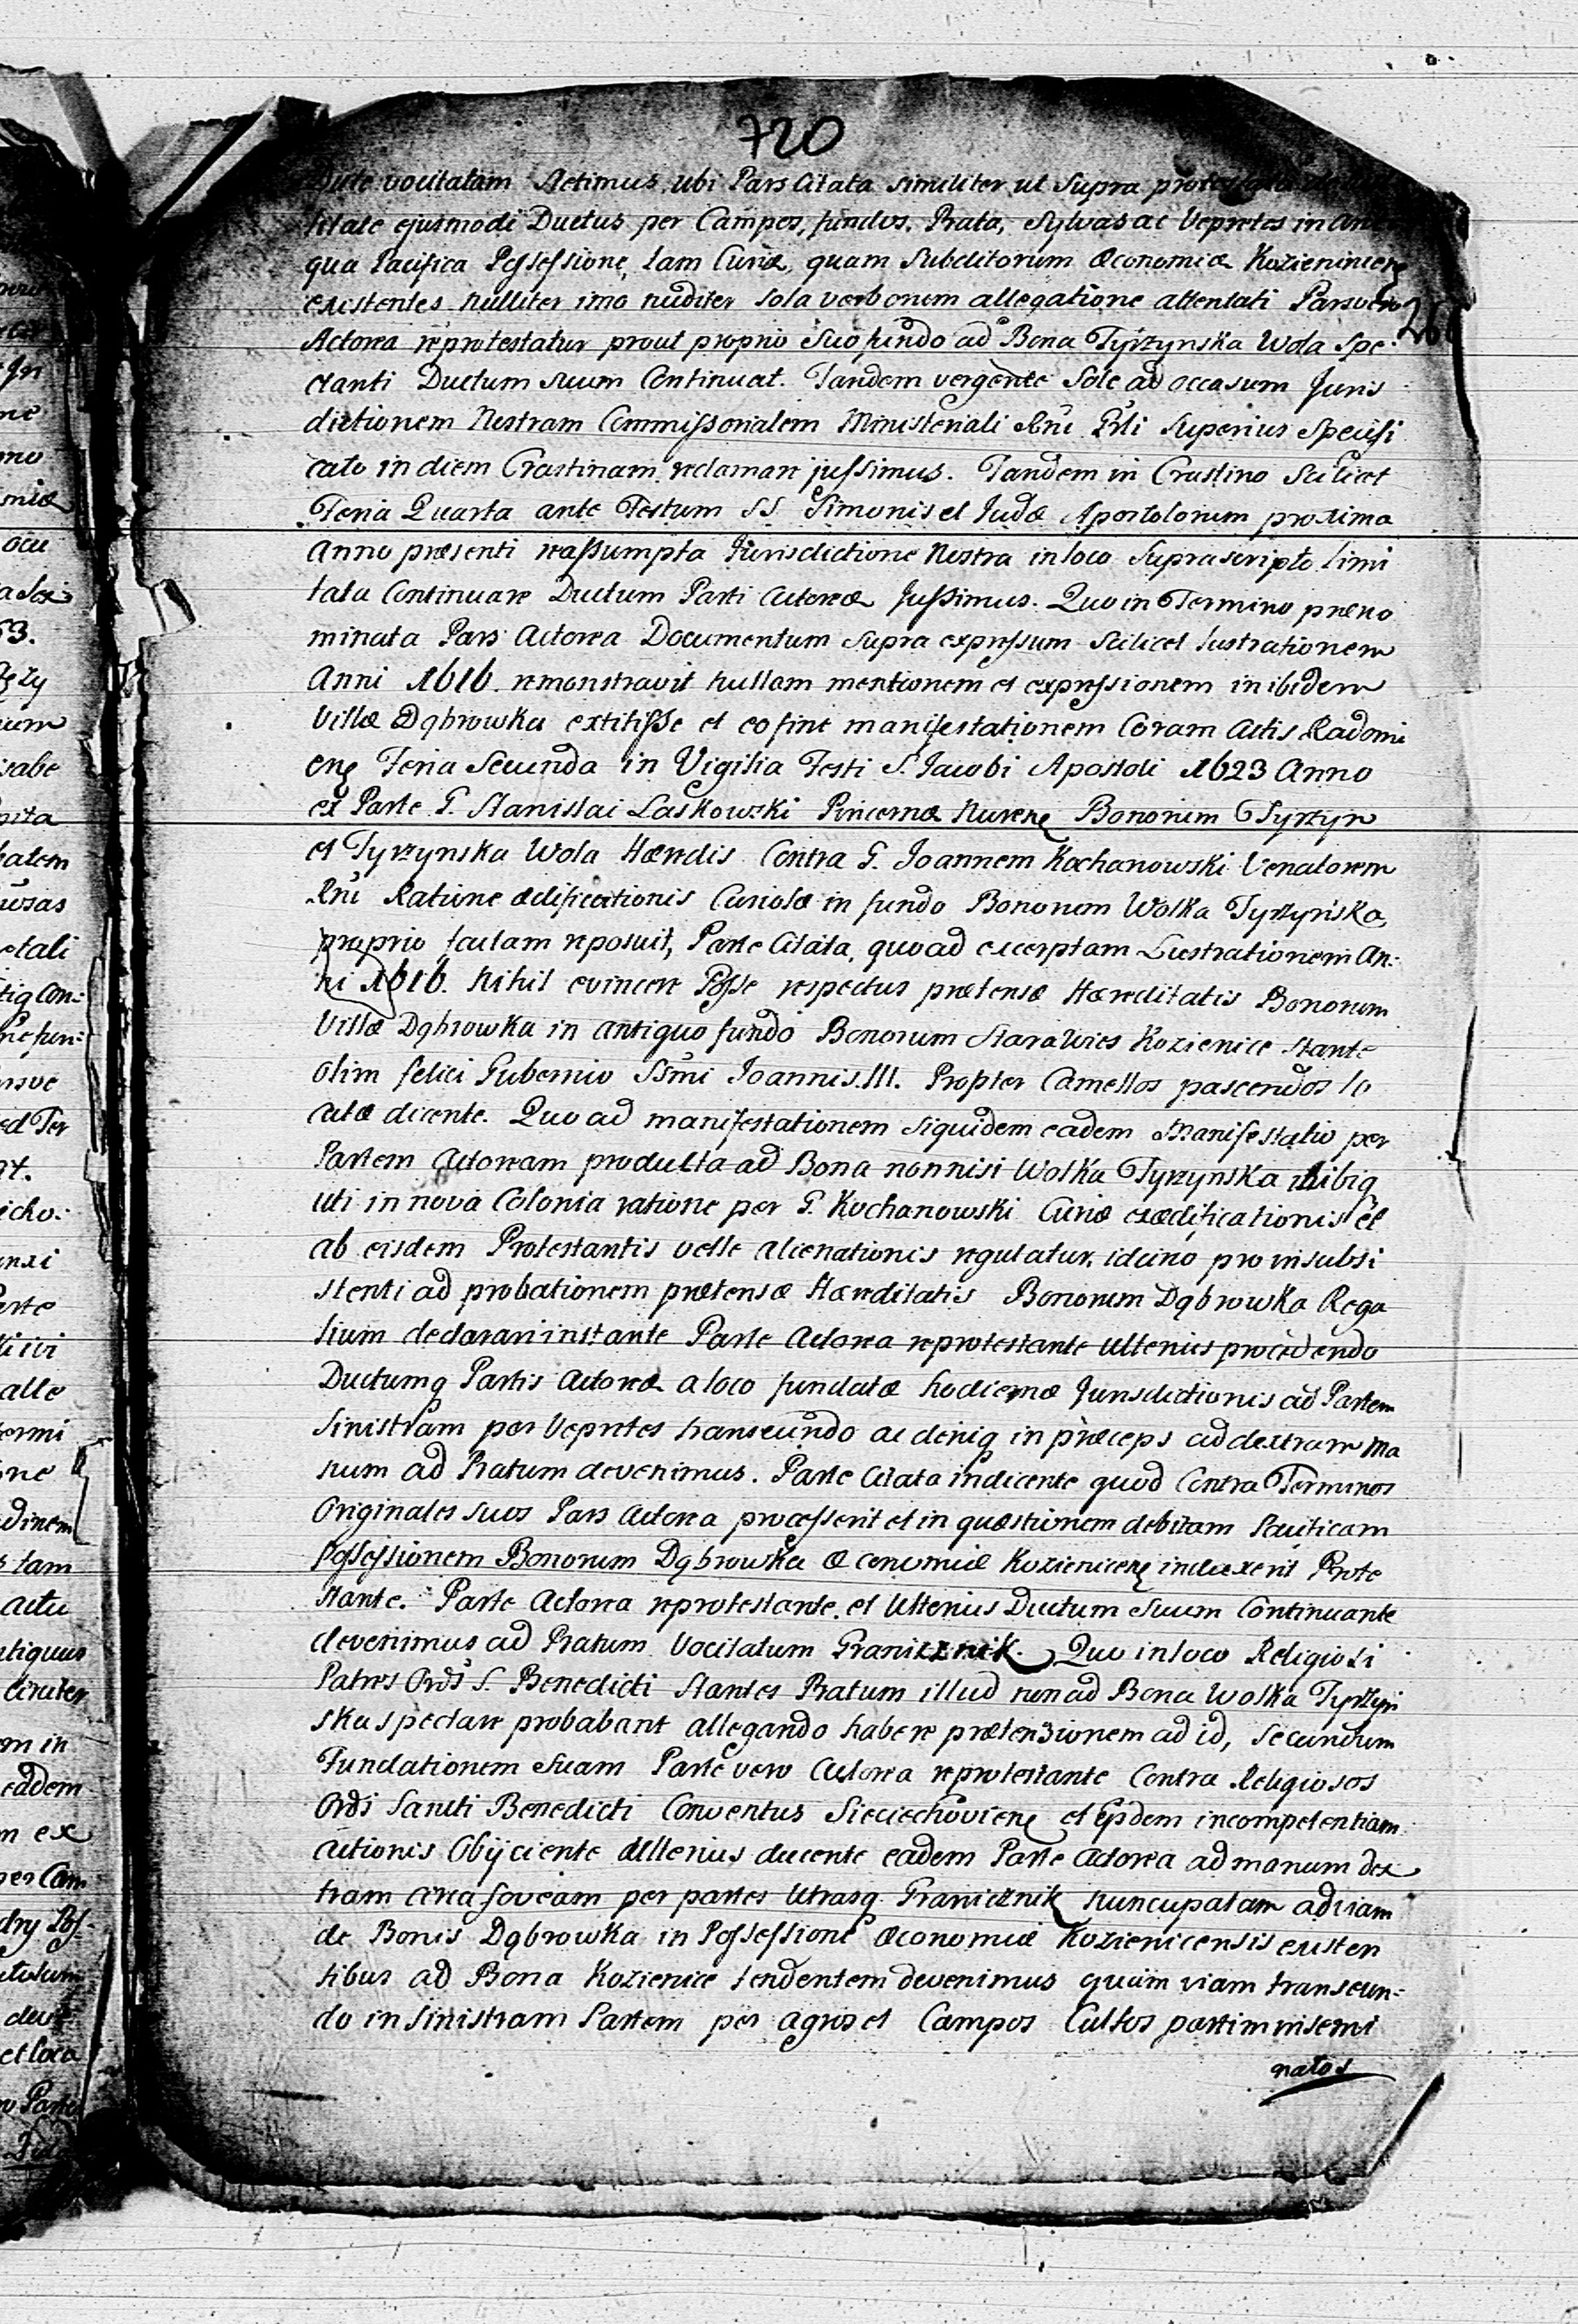 720
vocitatam stetimus, ubi Pars Citata similiter ut supra
litate ejusmodi Ductus per Campos, fundos, Prata, Sylvas ac Vepretes in
qua Pacifica Possessione, tam Curiæ, quam Subditorum Œconomiæ Koziennicens
existentes nulliter imo nuditer sola verborum allegatione attentati Pars vero
Actorea reprotestatur prout proprio suo fundo ad Bona Tyrzynska Wola spe-
ctanti Ductum suum Continuat. Tandem vergente Sole ad occasum Juris
dictionem Nostram Commissorialem Ministeriali Rni Pbli Superius Specifi
cato in diem Crastinam reclamari jussimus. Tandem in Crastino Scilicet
Feria Quarta ante Festum SS Simonis et Judæ Apostolorum proxima
Anno præsenti reassumpta Jurisdictione Nostra in loco Suprascripto limi
tata Continuare Ductum Parti Actoreæ Jussimus. Quo in Termino præno
minata Pars Actorea Documentum supra expressum Scilicet Lustrationem
Anni 1616. remonstravit nullam mentionem et expressionem inibidem
Villæ Dąbrowka extitisse et eo fine manifestationem Coram Actis Radomi
ens Feria Secunda in Vigilia Festi S. Jacobi Apostoli 1623 Anno
ex Parte G. Stanislai Laskowski Pincernæ Nurens Bonorum Tyrzyn
et Tyrzynska Wola Hæredis Contra G. Joannem Kochanowski Venatorem
Rni Ratione ædificationis Curiolæ in fundo Bonorum Wolka Tyrzyńska,
proprio factam reposuit, Parte Citata, quo ad excerptam Lustrationem An-
ni 1616. Nihil evincere Posse respectus prætensæ Hæreditatis Bonorum
Villæ Dąbrowka in antiquo fundo Bonorum Starawies Kozienice stante
olim felici Gubernio Ssmi Joannis III. Propter Camellos pascendos lo
catæ dicente. Quo ad manifestationem siquidem eadem Manifestatio per
Partem Actoream producta ad Bona nonnisi Wolka Tyrzynska ibiq
uti in nova Colonia ratione per G. Kochanowski Curiæ exædificationis et
ab eisdem Protestantis velle alienationis regulatur, idcirco pro insubsi
stenti ad probationem prætensæ Hæreditatis Bonorum Dąbrowka Rega
lium declarari instante Parte Actorea reprotestante Ulterius procedendo
Ductumq Partis Actoreæ a loco fundatæ hodiernæ Jurisdictionis ad Partem
Sinistram per Vepretes transeundo ac deniq in præceps ad dextram ma
num ad Pratum devenimus. Parte Citata indicente quod Contra Terminos
Originales suos Pars Actorea processerit et in quæstionem debitam Pacificam
Possessionem Bonorum Dąbrowka Œconomiæ Koziennicens induxerit Prote
stante. Parte Actorea reprotestante. et Ulterius Ductum suum Continuante
devenimus ad Pratum Vocitatum Granicznik. Quo in loco Religiosi
Patres Ordi S. Benedicti Stantes Pratum illud non ad Bona Wolka Tyrzyn
ska spectare probabant allegando habere prætensionem ad id, secundum
Fundationem Suam Parte vero Actorea reprotestante Contra Religiosos
Ordi Sancti Benedicti Conventus Sieciechoviens et Ejsdem incompetentiam
actionis Obijciente Ulterius ducente eadem Parte Actorea ad manum dex
tram circa foveam per partes Utrasq Granicznik nuncupatam ad viam
de Bonis Dąbrowka in Possessione Œconomiæ Kozienicensis existen
tibus ad Bona Kozienice tendentem devenimus quam viam transeun-
do in Sinistram Partem per agros et Campos Cultos partim insemi
natos